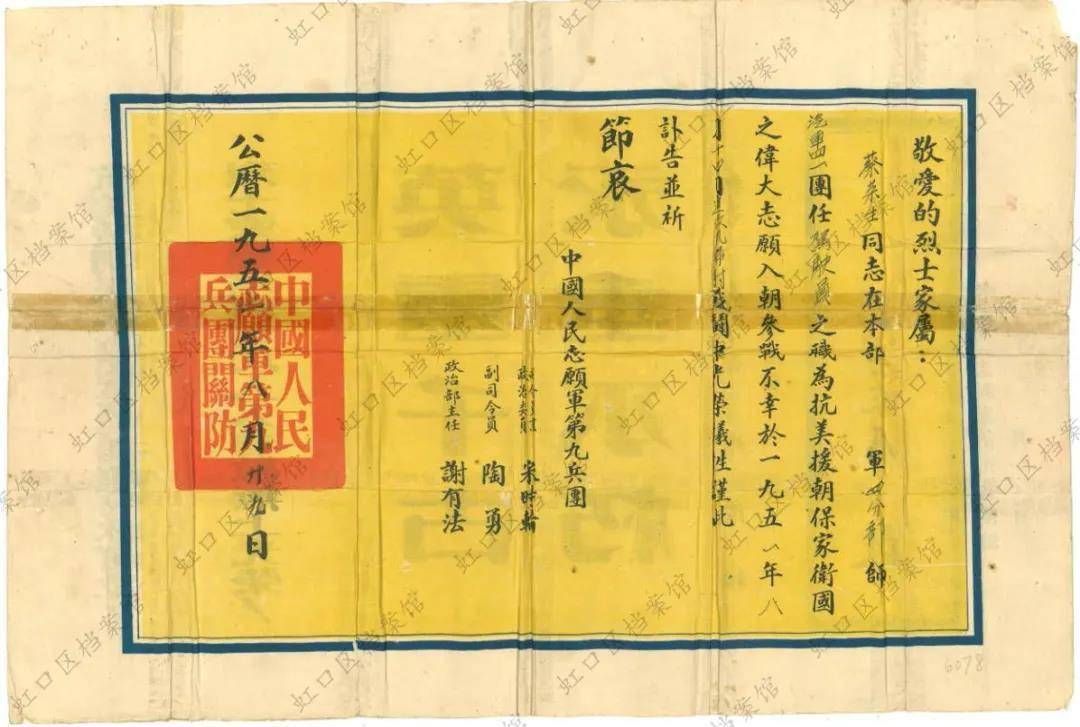 敬愛的烈士家屬：
蔡泉生同志在本部 軍四分部師
汽車四一團任駕駛員之職為抗美援朝保家衛國
之偉大志願入朝參戰不幸於一九五一年八
月十四日 村戰鬪中光榮犧牲謹此
訃告並祈
節哀
中國人民志願軍第九兵團
司令員兼
政治委員 宋時輪
副司令員 陶勇
政治部主任 謝有法
公曆一九五一年八月廿九日
中國人民
志願軍第九
兵團關防
6078
虹口区档案馆